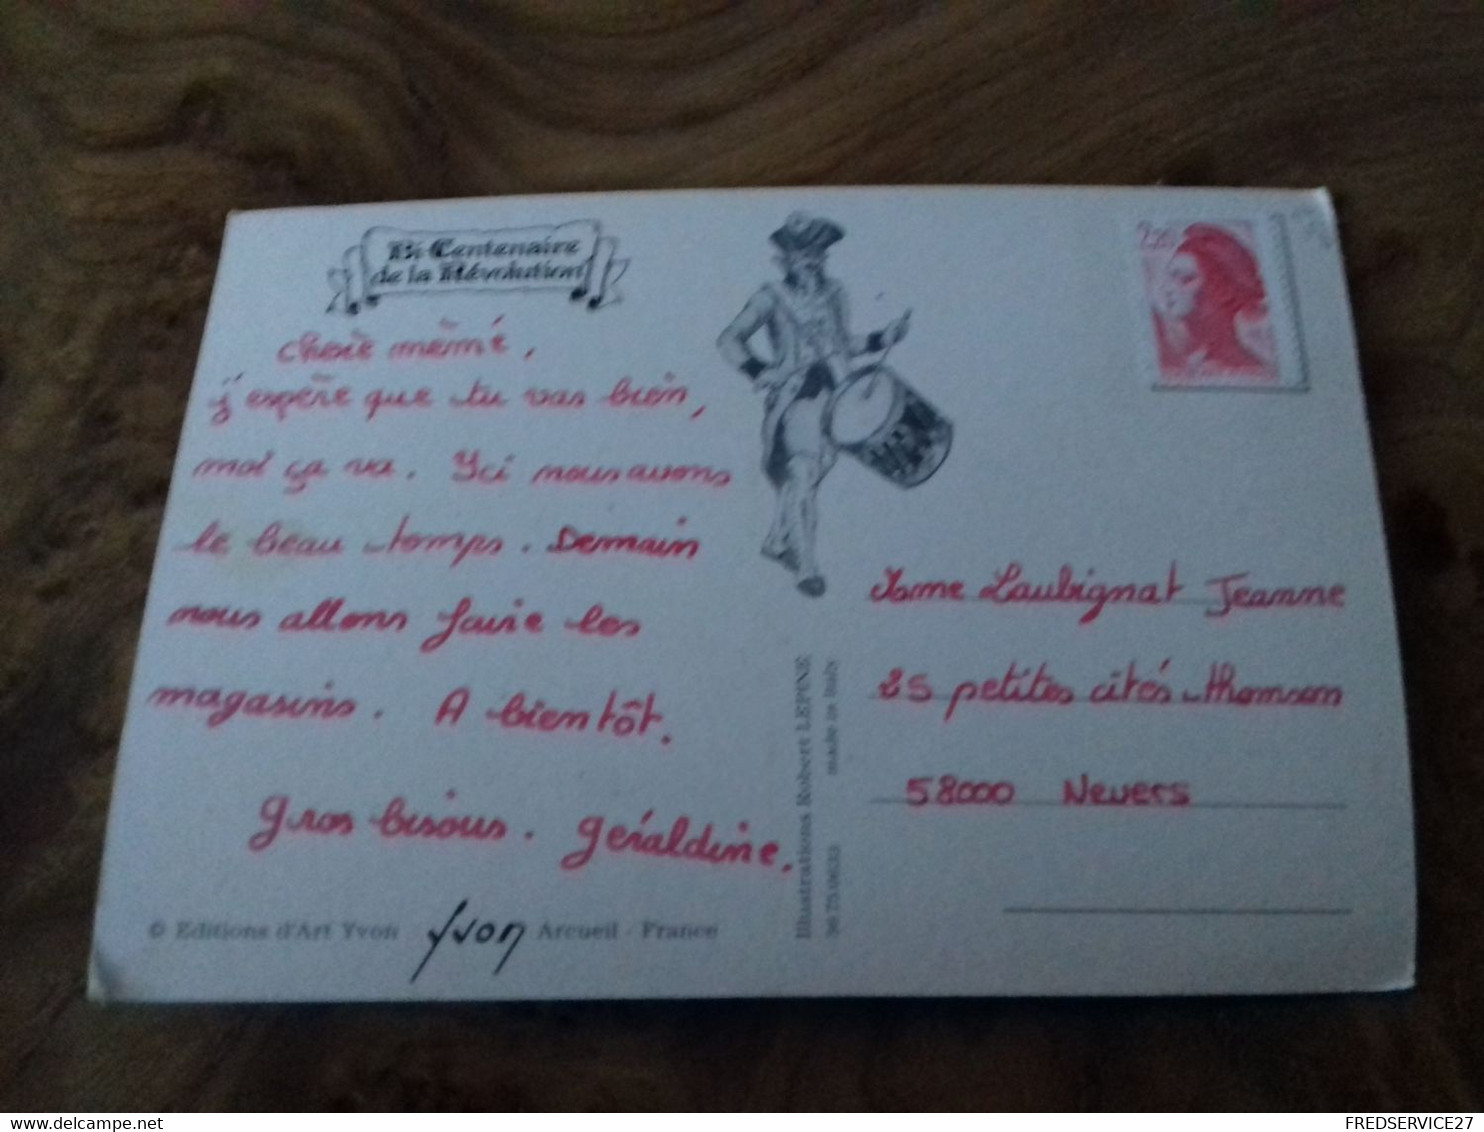 Bi-Centenaire
de la Révolution
chère mémé,
j'espère que tu vas bien,
moi ça va. Ici nous avons
le beau temps. Demain
nous allons faire les
magasins. A bientôt.
gros bisous. géraldine.
© Editions d'Art Yvon Yvon Arcueil - France
Illustrations Robert LEPINE
made in Italy
2,20
Laubignat Jeanne
25 petites cités thomson
58000 Nevers
FREDSERVICE27